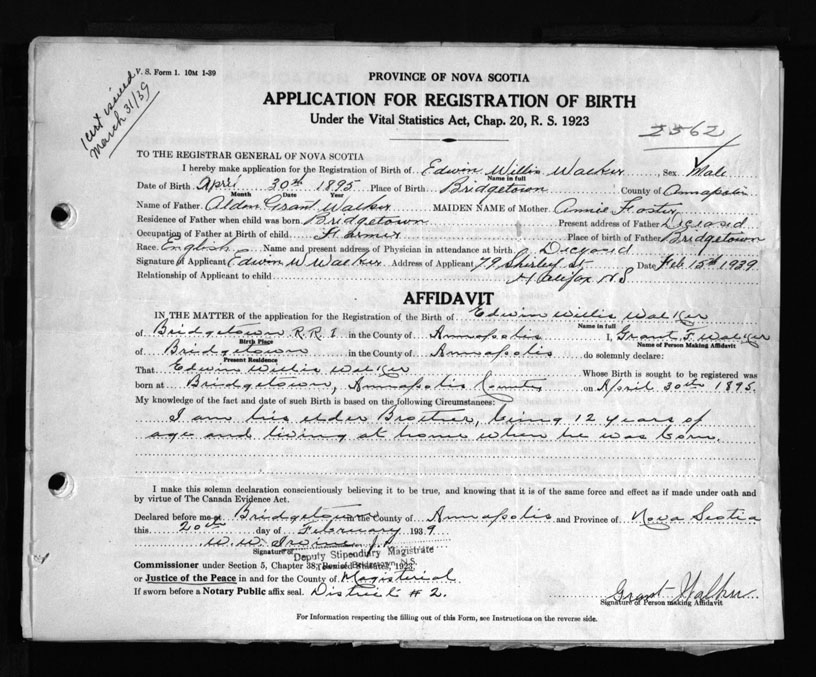 V. S. Form 1. 10M 1-39
Cert issued
March 31/39
PROVINCE OF NOVA SCOTIA
APPLICATION FOR REGISTRATION OF BIRTH
Under the Vital Statistics Act, Chap. 20, R. S. 1923
2562
TO THE REGISTRAR GENERAL OF NOVA SCOTIA
I hereby make application for the Registration of Birth of Edwin Willis Walker Sex Male
Name in full
Date of Birth April 30th 1895 Place of Birth Bridgetown County of Annapolis
Month Date Year
Name of Father Aldon Grant Walker MAIDEN NAME of Mother Annie Foster
Residence of Father when child was born Bridgetown Present address of Father Deceased
Occupation of Father at Birth of child Farmer Place of birth of Father Bridgetown
Race English Name and present address of Physician in attendance at birth Deceased
Signature of Applicant Edwin W Walker Address of Applicant 79 Shirley St Date Feb 15th 1939
Relationship of Applicant to child Halifax N.S
AFFIDAVIT
IN THE MATTER of the application for the Registration of the Birth of Edwin Willis Walker
Name in full
of Bridgetown R.R. 1 in the County of Annapolis I, Grant F. Walker
Birth Place Name of Person Making Affidavit
of Bridgetown in the County of Annapolis do solemnly declare:
Present Residence
That Edwin Willis Walker Whose Birth is sought to be registered was
born at Bridgetown, Annapolis County on April 30th 1895.
My knowledge of the fact and date of such Birth is based on the following Circumstances:
I am his elder Brother, being 12 years of
age and living at home when he was born.
I make this solemn declaration conscientiously believing it to be true, and knowing that it is of the same force and effect as if made under oath and
by virtue of The Canada Evidence Act.
Declared before me at Bridgetown in the County of Annapolis and Province of Nova Scotia
this 20th day of February 1939
W. W. Irvine
Signature of
Deputy Stipendiary Magistrate
Commissioner under Section 5, Chapter 38, Revised Statutes, 1923
or Justice of the Peace in and for the County of Magisterial
If sworn before a Notary Public affix seal. District # 2.
Grant Walker
Signature of Person making Affidavit
For Information respecting the filling out of this Form, see Instructions on the reverse side.